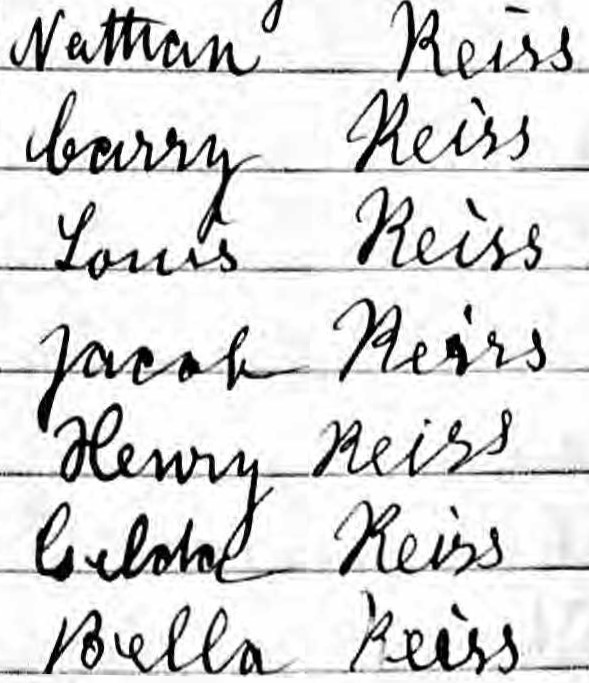 Nathan Reiss
Carry Reiss
Louis Reiss
Jacob Reiss
Henry Reiss
Reiss
Bella Reiss